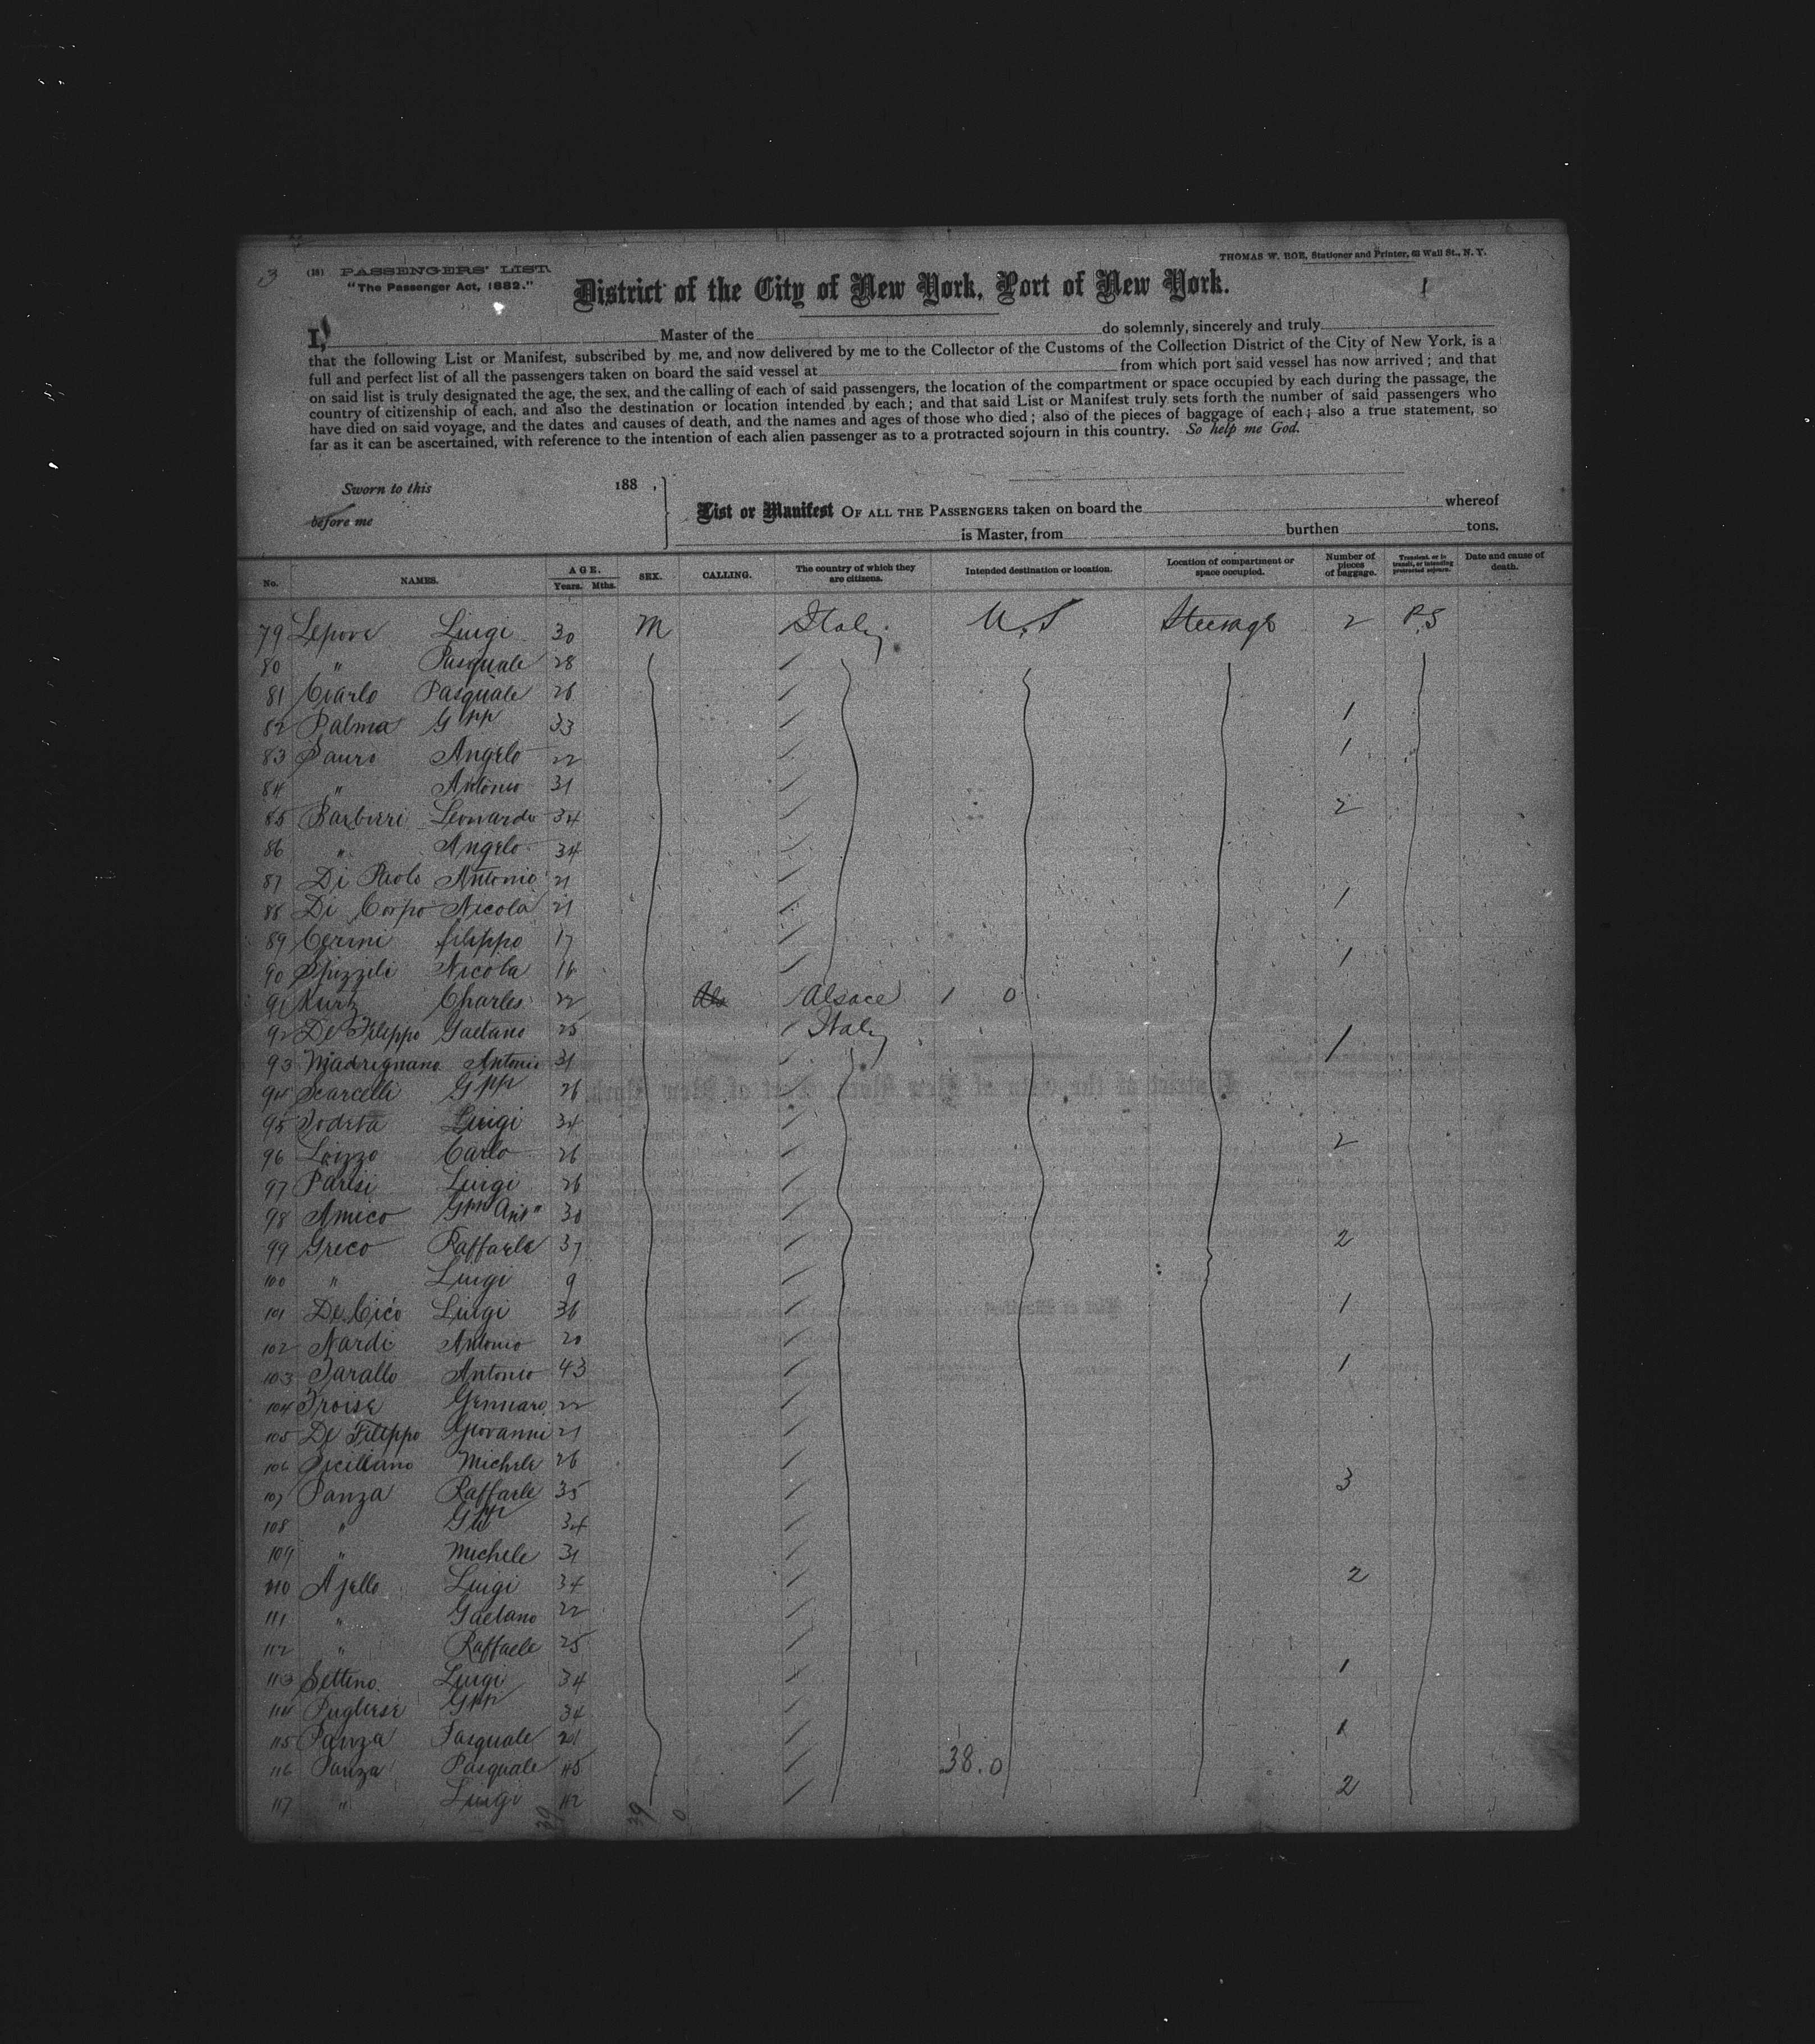 3 (18) PASSENGERS' LIST.
"The Passenger Act, 1882."
THOMAS W. ROE, Stationer and Printer, 63 Wall St., N. Y.
District of the City of New York, Port of New York.
1
I, Master of the do solemnly, sincerely and truly
that the following List or Manifest, subscribed by me, and now delivered by me to the Collector of the Customs of the Collection District of the City of New York, is a
full and perfect list of all the passengers taken on board the said vessel at from which port said vessel has now arrived; and that
on said list is truly designated the age, the sex, and the calling of each of said passengers, the location of the compartment or space occupied by each during the passage, the
country of citizenship of each, and also the destination or location intended by each; and that said List or Manifest truly sets forth the number of said passengers who
have died on said voyage, and the dates and causes of death, and the names and ages of those who died; also of the pieces of baggage of each; also a true statement, so
far as it can be ascertained, with reference to the intention of each alien passenger as to a protracted sojourn in this country. So help me God.
Sworn to this 188 ,
before me
List or Manifest OF ALL THE PASSENGERS taken on board the whereof
is Master, from burthen tons.
No. NAMES. AGE. Years. Mths. SEX. CALLING. The country of which they are citizens. Intended destination or location. Location of compartment or space occupied. Number of pieces of baggage. Transient, or in transit, or intending protracted sojourn. Date and cause of death.
79 Lepore Luigi 30 M Italy U.S Steerage 2 P.S
80 " Pasquale 28
81 Ciarlo Pasquale 26
82 Palma Gpp 33 1
83 Sauro Angelo 22 1
84 " Antonio 31
85 Barbieri Leonardo 34 2
86 " Angelo 34
87 Di Paolo Antonio 21
88 Di Corpo Nicola 21 1
89 Cerini filippo 17
90 Spizzili Nicola 16 1
91 Kurz Charles 22 Alsace 1 0
92 De Filippo Gaetano 25 Italy 1
93 Madrignano Antonio 31
94 Scarcelli Gpp 26
95 Luigi 34
96 Loizzo Carlo 26 2
97 Parisi Luigi 26
98 Amico Gpp Ant° 30
99 Greco Raffaele 37 2
100 " Luigi 9
101 De Cico Luigi 36 1
102 Nardi Antonio 20
103 Tarallo Antonio 43 1
104 Troise Gennaro 22
105 De Filippo Giovanni 21
106 Siciliano Michele 26
107 Panza Raffaele 35 3
108 " 34
109 " Michele 31
110 Ajello Luigi 34 2
111 " Gaetano 22
112 " Raffaele 25
113 Settino Luigi 34 1
114 Pugliese Gpp 34
115 Panza Pasquale 21 1
116 Panza Pasquale 45 38.0
117 " Luigi 42 2
39 39 0